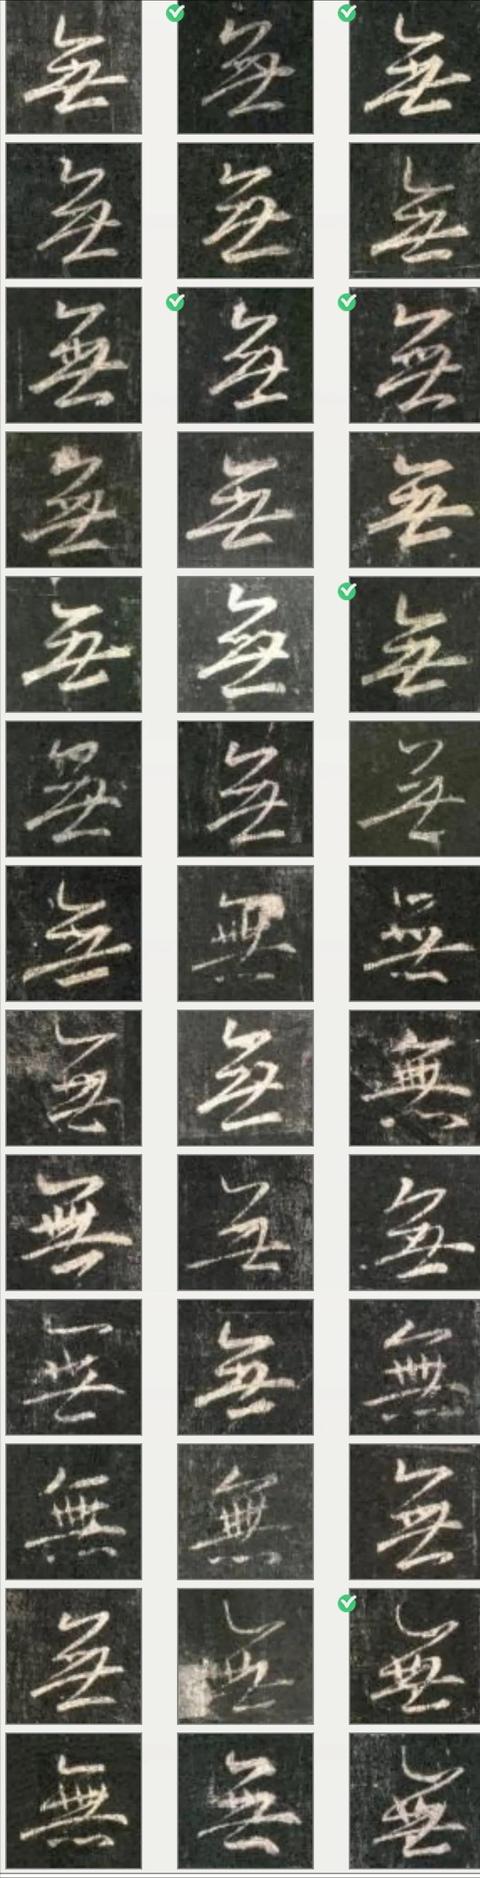 無 無 無
無 無 無
無 無 無
無 無 無
無 無 無
無 無 無
無 無 無
無 無 無
無 無 無
無 無 無
無 無 無
無 無 無
無 無 無